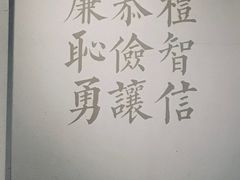 禮智信
恭儉讓
廉恥勇